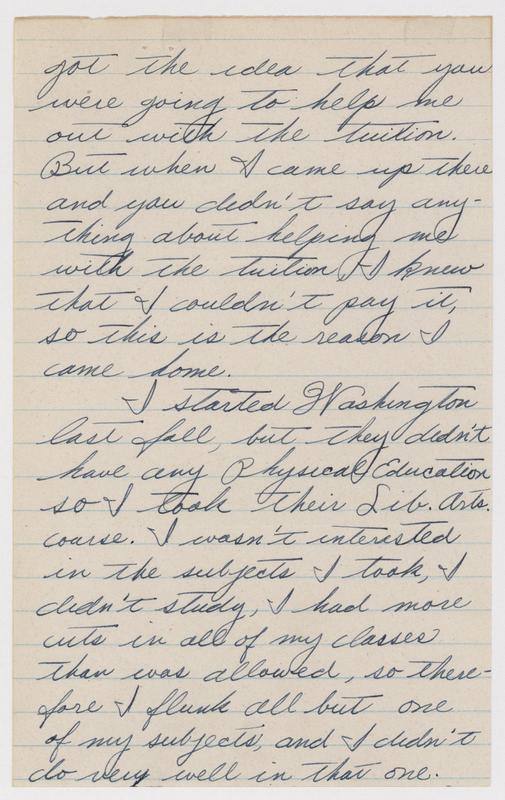 got the idea that you
were going to help me
out with the tuition.
But when I came up there
and you didn't say any-
thing about helping me
with the tuition, I knew
that I couldn't pay it,
so this is the reason I
came home.
I started Washington
last fall, but they didn't
have any Physical Education
so I took their Lib. Arts.
course. I wasn't interested
in the subjects I took, I
didn't study, I had more
cuts in all of my classes
than was allowed, so there-
fore I flunk all but one
of my subjects, and I didn't
do very well in that one.